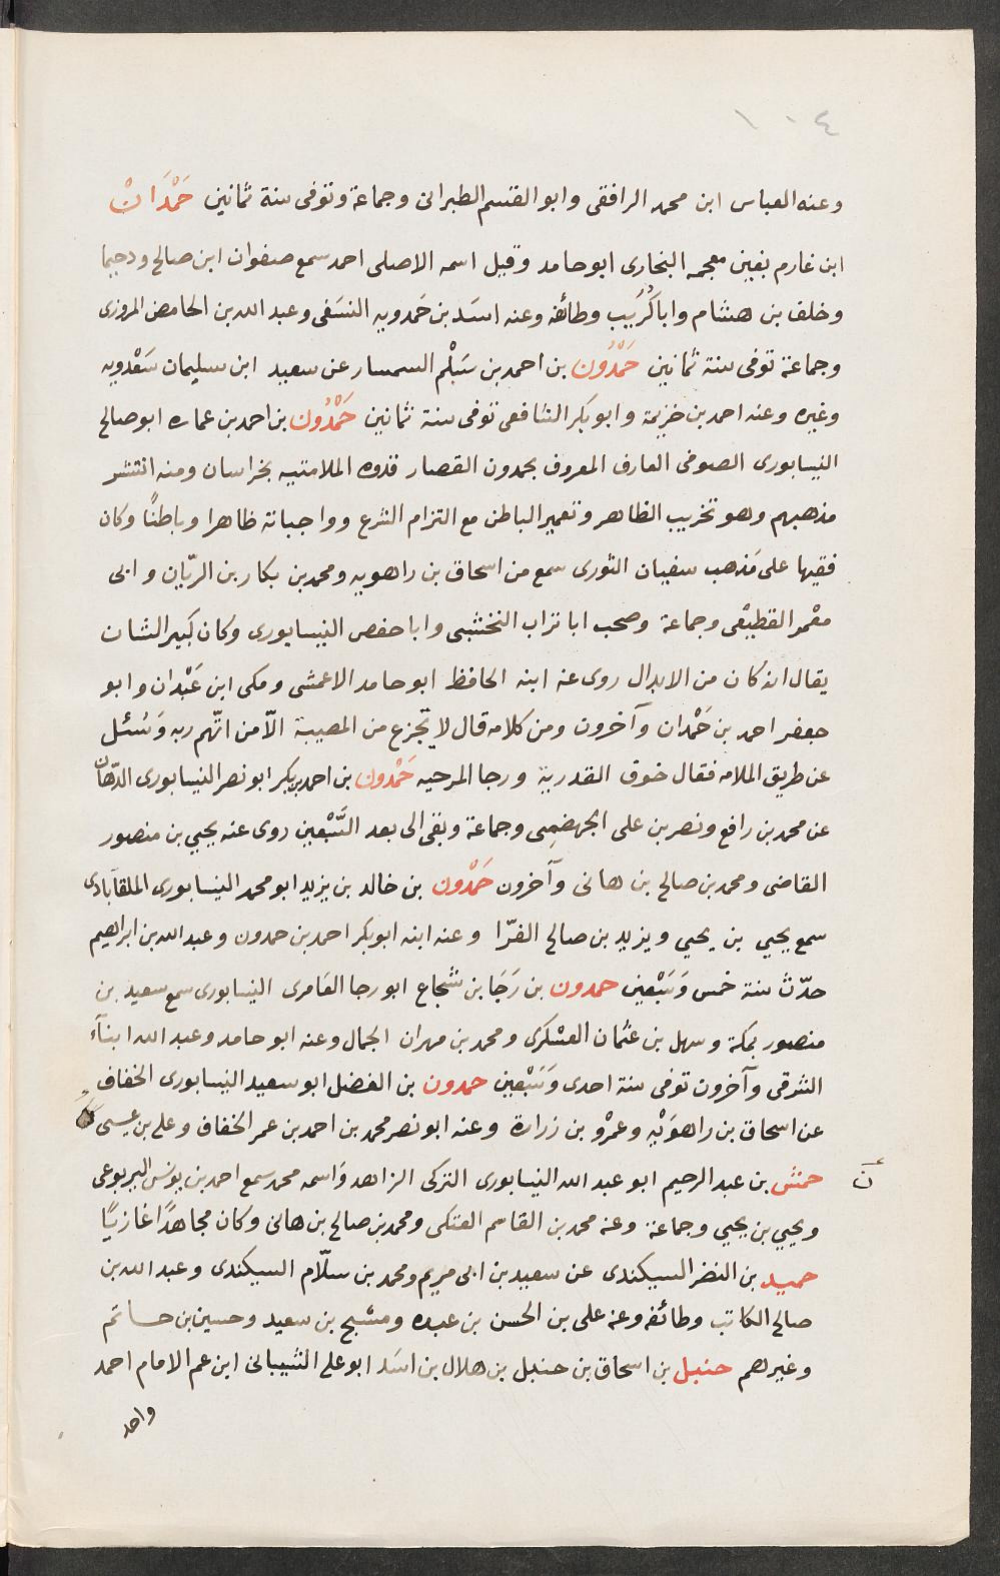 ١٠٤
وعنه العباس ابن محمد الرافقى وابو القسم الطبرانى وجماعة وتوفى سنة ثمانين حَمْدَانْ
ابن غارم بغين معجمه البخارى ابو حامد وقيل اسمه الاصلى احمد سمع صفوان ابن صالح ودحيما
وخلف بن هشام وابا كُرَيَب وطائفة وعنه اسَد بن حَمدويه النسَفى وعبد الله بن الحامض المروزى
وجماعة توفى سنة ثمانين حَمْدُون بن احمد بن سَلْم السمسار عن سعيد ابن سليمان سَعْدويه
وغيره وعنه احمد بن خزيمة وابو بكر الشافعى توفى سنة ثمانين حَمْدُون بن احمد بن عماره ابو صالح
النيسابورى الصوفى العارف المعروف بحمدون القصار قدوه الملامتيه بخراسان ومنه انتشر
مذهبهم وهو تخريب الظاهر وتعمير الباطن مع التزام الشرع وواجباته ظاهرا وباطنًا وكان
فقيها على مَذهب سفيان الثورى سمع من اسحاق بن راهويه ومحمد بن بكار بن الريّان وابى
معْمر القطيعْى وجماعة وصحب ابا تراب النخشبى وابا حفص النيسابورى وكان كبير الشان
يقال انه كان من الابدال روى عنه ابنه الحافظ ابو حامد الاعمشى ومكى ابن عَبْدان وابو
جعفر احمد بن حَمْدان وآخرون ومن كلامه قال لا تجزع من المصيبة الّا من اتّهم ربه وَسُئل
عن طريق الملامه فقال خوف القدرية ورجا المرجيه حَمْدون بن احمد بن بكر ابو نصر النيسابورى الدّهان
عن محمد بن رافع ونصر بن على الجهضمِى وجماعة وبقى الى بعد السَّبْعين روى عنه يحيي بن منصور
القاضى ومحمد بن صالح بن هانى وآخرون حَمْدون بن خالد بن يزيد ابو محمد النيسابورى الملقآبادى
سمع يحيي بن يحيي ويزيد بن صالح الفرّا وعنه ابنه ابو بكر احمد بن حمدون وعبد الله بن ابراهيم
حدّث سنة خمس وَسَبْعين حمدون بن رَجَا بن شُجاع ابو رجا العَامرى النيسابورى سمع سعيد بن
منصور بمكة وسهل بن عثمان العسْكرى ومحمد بن مهران الجمال وعنه ابو حامد وعبد الله ابنآء
الشرقى وآخرون توفى سنة احدى وَسَبْعين حمدون بن الفضل ابو سعيد النيسابورى الخفاف
عن اسحاق بن راهوَيْه وعمْرو بن زرارة وعنه ابو نصر محمد بن احمد بن عمر الخفاف وعلى بن عيسى
حمش بن عبد الرحيم ابو عبد الله النيسابورى التركى الزاهد وَاسمه محمد سمع احمد بن يونس اليربوعى
ويحيي بن يحيي وجماعة وعنه محمد بن القاسم العتكى ومحمد بن صالح بن هانى وكان مجاهدًا غازيًا
حميد بن النضر السيكندى عن سعيد بن ابى مريم ومحمد بن سلّام السيكندى وعبد الله بن
صالح الكاتب وطائفه وعنه على بن الحسن بن عبده ومسَبح بن سعيد وحسين بن حاتم
وغيرهم حنبل بن اسحاق بن حنبل بن هلال بن اسَد ابو على الشيبانى ابن عم الامام احمد
واحد